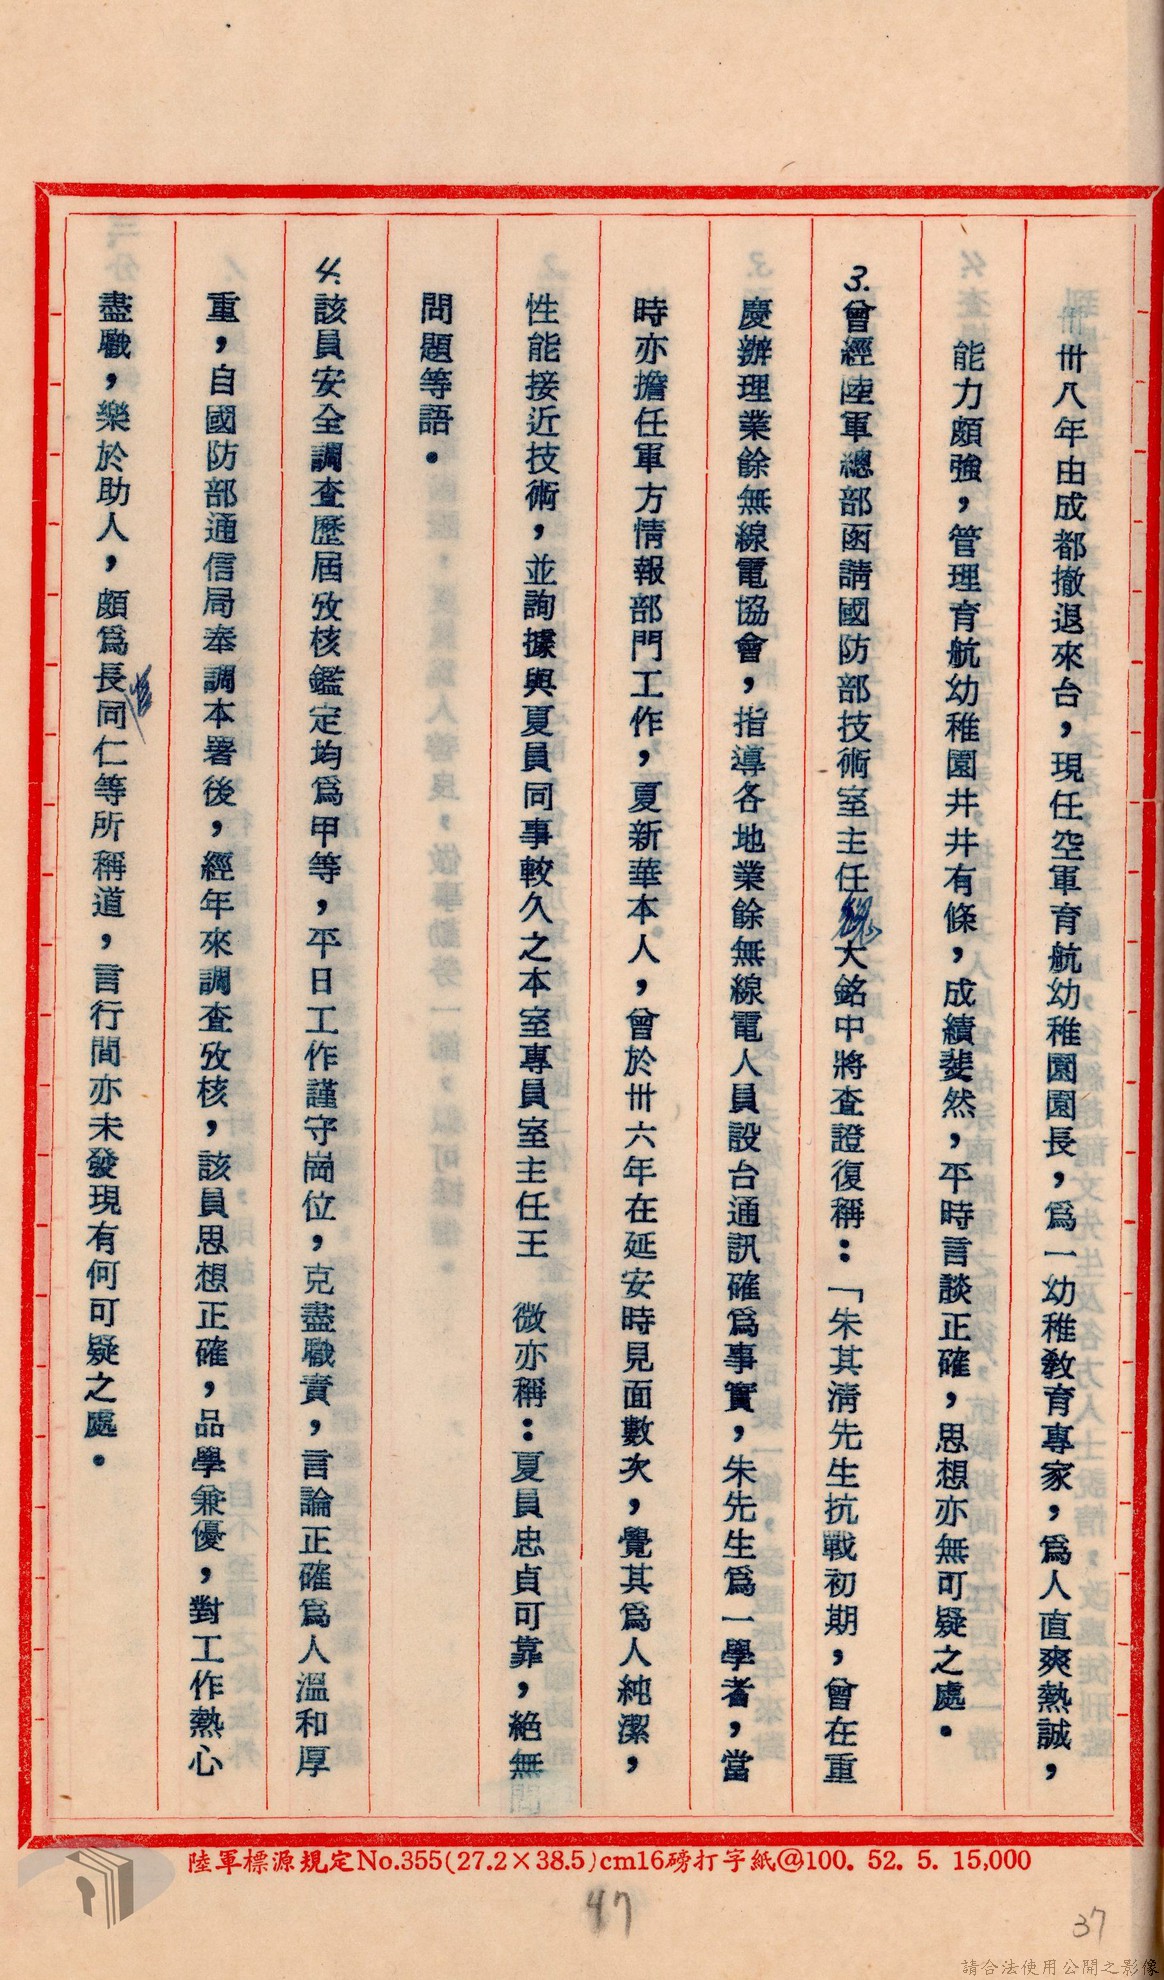 卅八年由成都撤退來台，現任空軍育航幼稚園園長，為一幼稚教育專家，為人直爽熱誠，
能力頗強，管理育航幼稚園井井有條，成績斐然，平時言談正確，思想亦無可疑之處。
3.曾經陸軍總部函請國防部技術室主任魏大銘中將查證復稱：「朱其清先生抗戰初期，曾在重
慶辦理業餘無線電協會，指導各地業餘無線電人員設台通訊確為事實，朱先生為一學者，當
時亦擔任軍方情報部門工作，夏新華本人，曾於卅六年在延安時見面數次，覺其為人純潔，
性能接近技術，並詢據與夏員同事較久之本室專員室主任王　微亦稱：夏員忠貞可靠，絕無
問題等語。
4.該員安全調查歷屆攷核鑑定均為甲等，平日工作謹守崗位，克盡職責，言論正確為人溫和厚
重，自國防部通信局奉調本署後，經年來調查攷核，該員思想正確，品學兼優，對工作熱心
盡職，樂於助人，頗為長官同仁等所稱道，言行間亦未發現有何可疑之處。
陸軍標源規定No.355(27.2×38.5)cm16磅打字紙@100. 52. 5. 15,000
47
37
請合法使用公開之影像